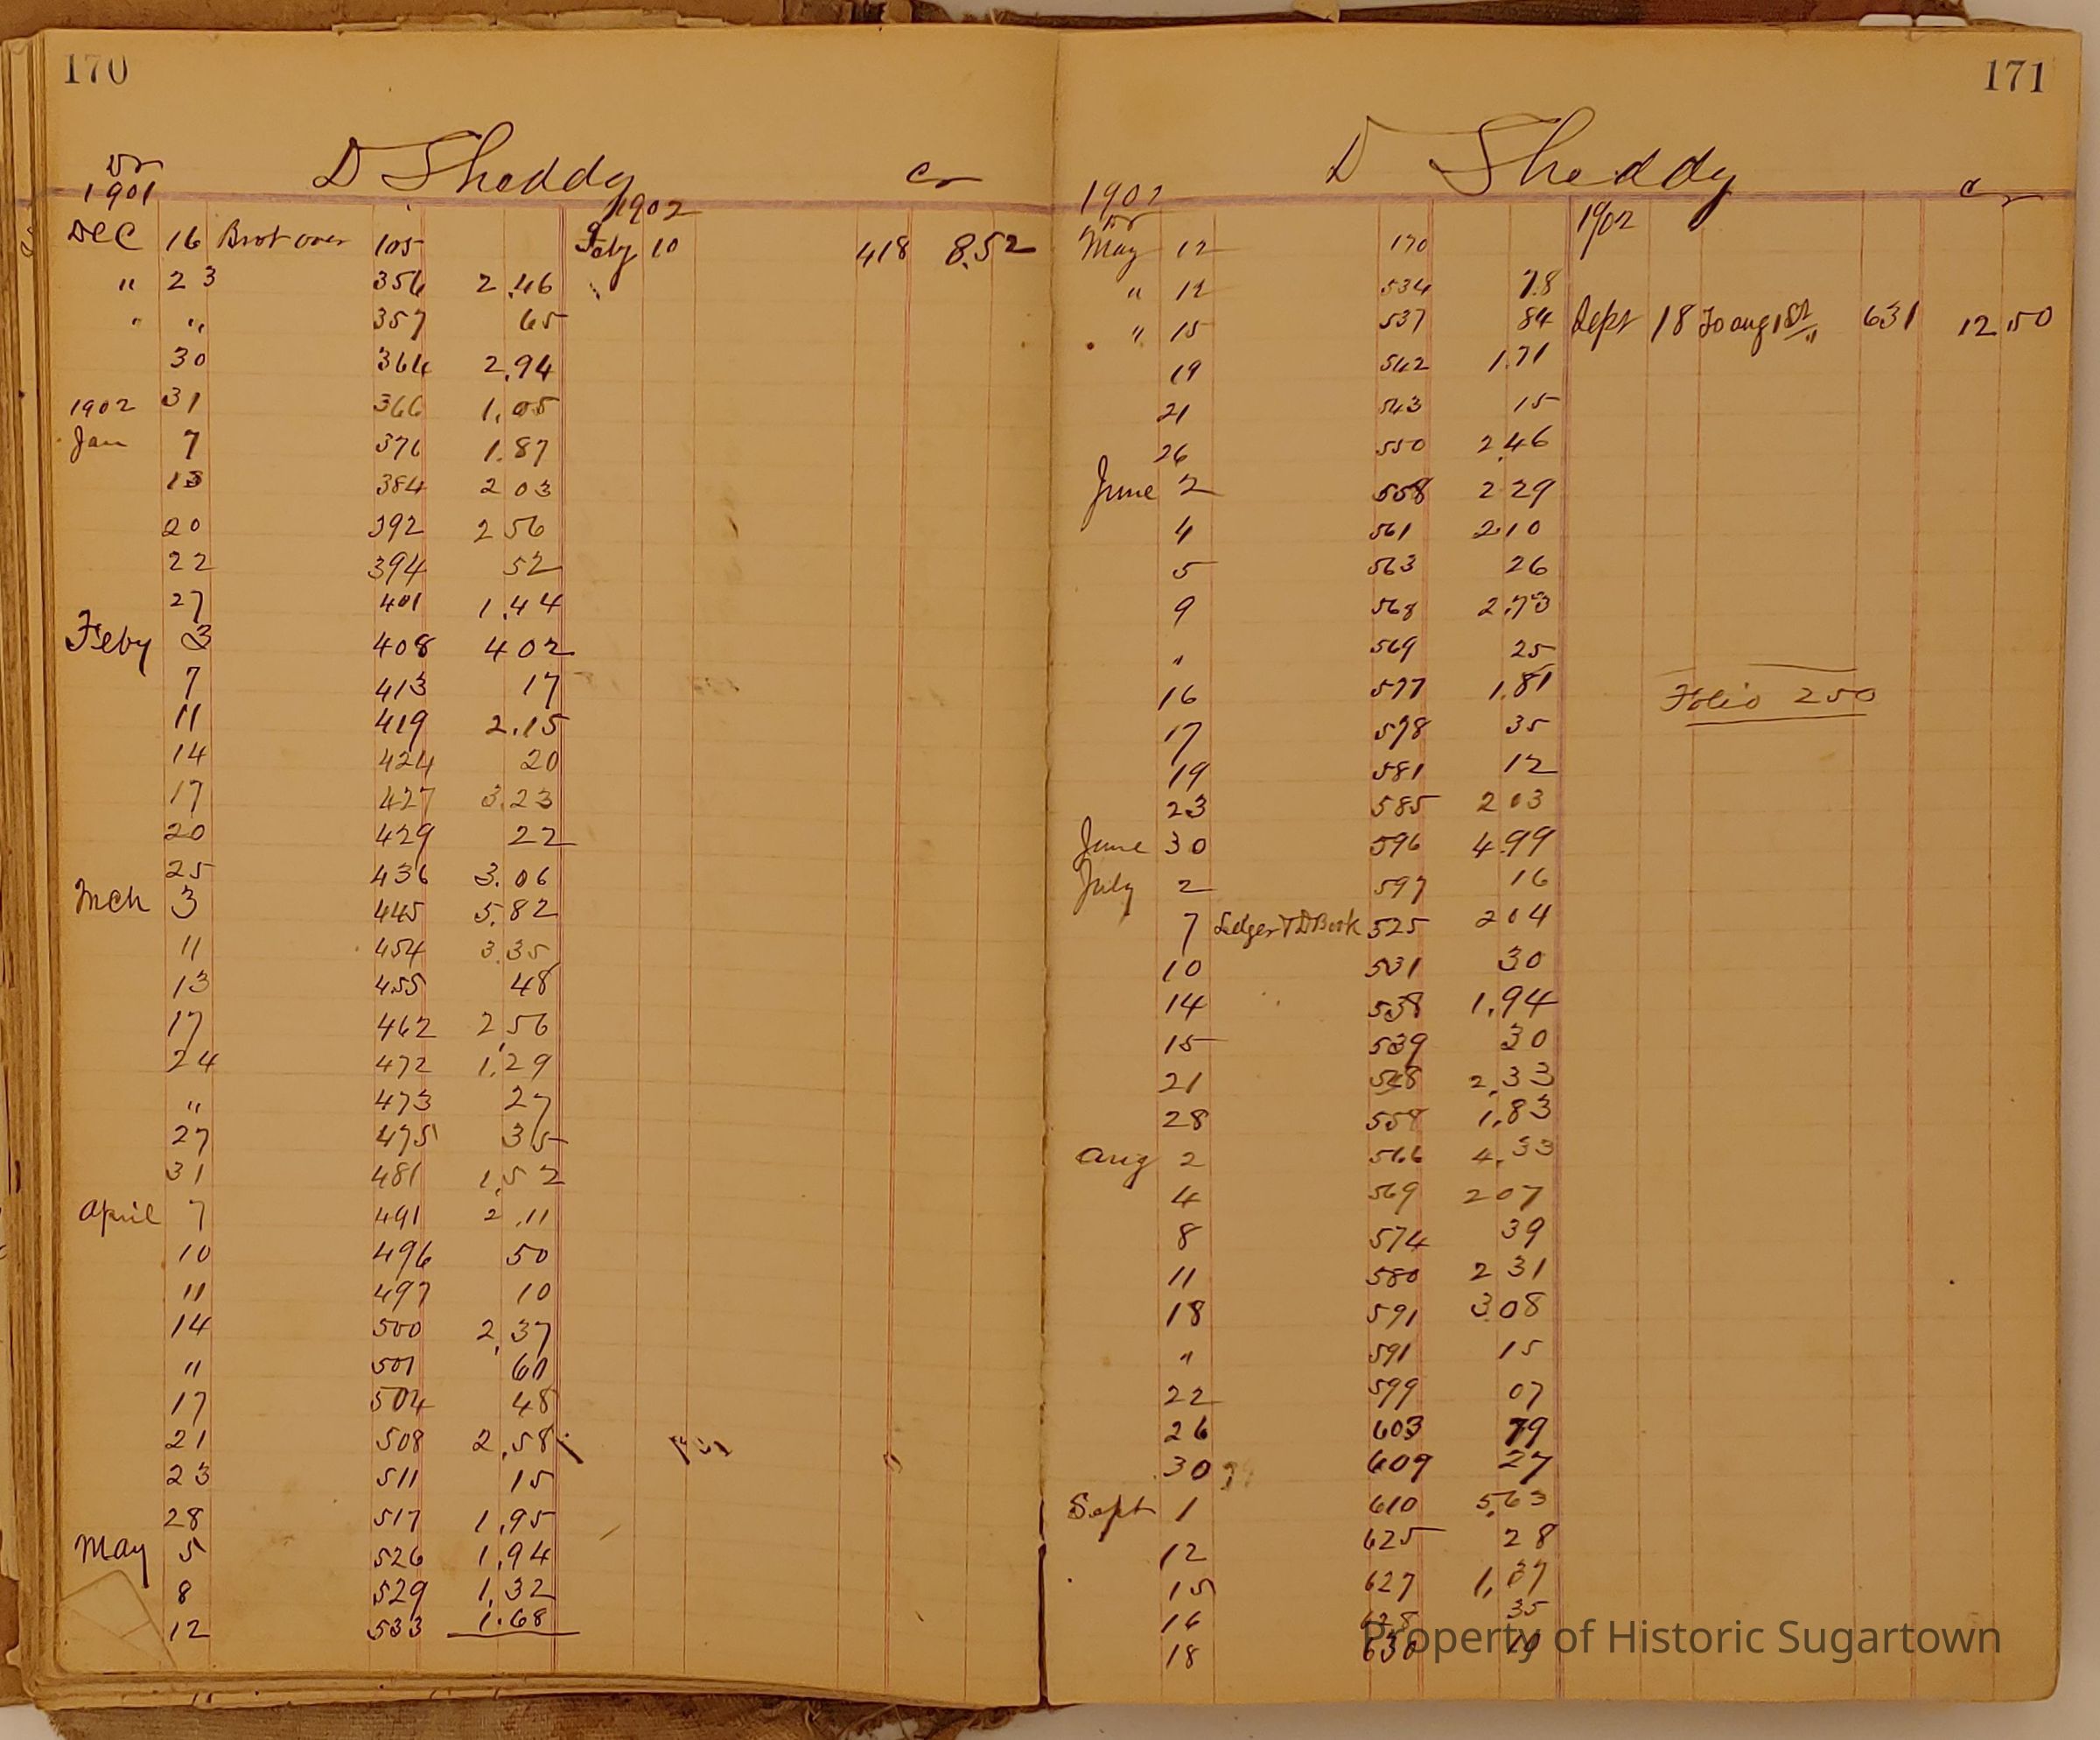 170
D Sheddy
Dr Cr
1901 1902
Dec 16 Brot over 105 Feby 10 418 8.52
" 23 356 2.46
" " 357 65
30 364 2.94
1902 31 366 1.05
Jan 7 376 1.87
13 384 2 03
20 392 2 56
22 394 52
27 401 1.44
Feby 3 408 4 02
7 413 17
11 419 2.15
14 424 20
17 427 3.23
20 429 22
25 436 3.06
Mch 3 445 5.82
11 454 3.35
13 455 48
17 462 2,56
24 472 1.29
" 473 27
27 475 35
31 481 1.52
April 7 491 2.11
10 496 50
11 497 10
14 500 2,37
" 501 60
17 504 48
21 508 2.58
23 511 15
28 517 1.95
May 5 526 1.94
8 529 1,32
12 533 1.68
171
D Sheddy
1902 Cr
Dr 1902
May 12 170
" 12 534 78
" 15 537 84 Sept 18 To Aug 1st " 631 12.50
19 542 1.71
21 543 15
26 550 2.46
June 2 558 2 29
4 561 2.10
5 563 26
9 568 2.73
" 569 25
16 577 1.81 Folio 250
17 578 35
19 581 12
23 585 2 03
June 30 596 4.99
July 2 597 16
7 Ledger & D Book 525 2 04
10 531 30
14 538 1.94
15 539 30
21 548 2.33
28 558 1.83
Aug 2 566 4.33
4 569 2 07
8 574 39
11 580 2 31
18 591 3.08
" 591 15
22 599 07
26 603 79
30 609 27
Sept 1 610 5.63
12 625 28
15 627 1,37
16 628 35
18 630 10
Property of Historic Sugartown